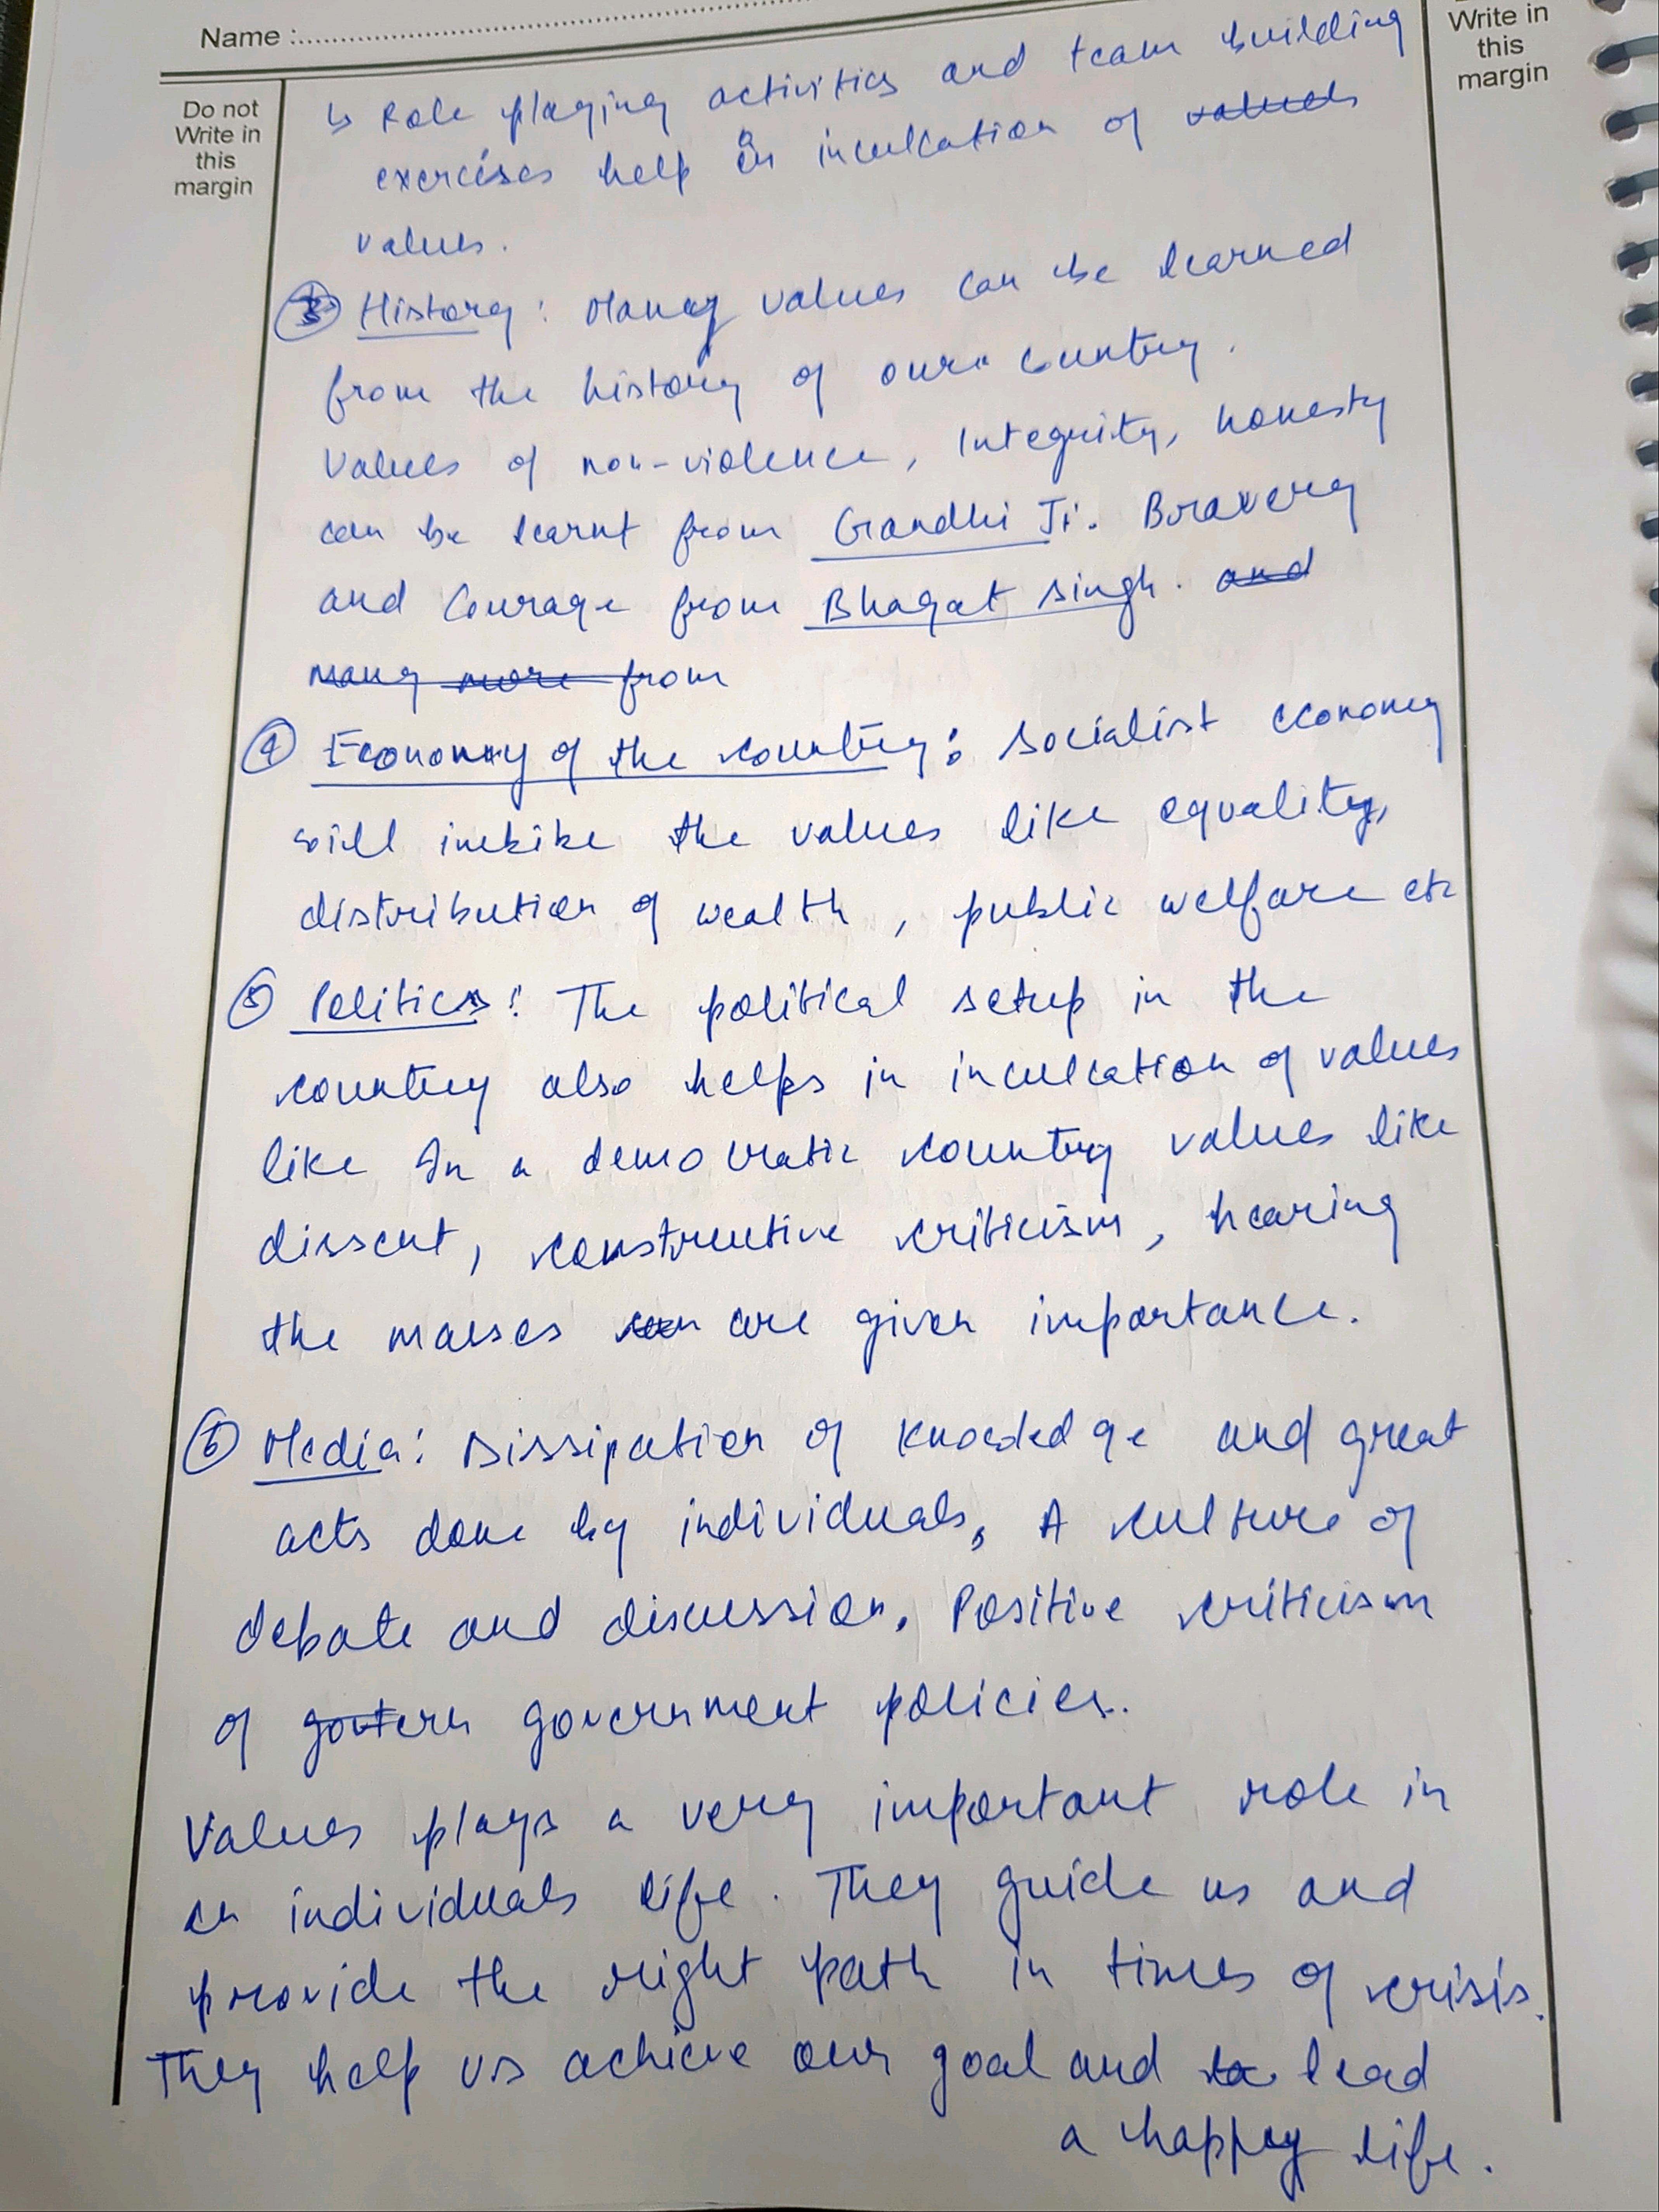 Name :
Write in
this
margin
Do not
Write in
this
margin
↳ Role playing activities and team building
exercises help in inculcation of values
values.
③ History: Many values can be learned
from the history of our country.
Values of non-violence, Integrity, honesty
can be learnt from Gandhi Ji. Bravery
and Courage from Bhagat Singh. and
many more from
④ Economy of the country: Socialist economy
will imbibe the values like equality,
distribution of wealth, public welfare etc
⑤ Politics: The political setup in the
country also helps in inculcation of values
like In a democratic country values like
dissent, constructive criticism, hearing
the masses are given importance.
⑥ Media: Dissipation of knowledge and great
acts done by individuals, A culture of
debate and discussion. Positive criticism
of govtern government policies.
Values plays a very important role in
an individuals life. They guide us and
provide the right path in times of crisis.
They help us achieve our goal and to lead
a happy life.